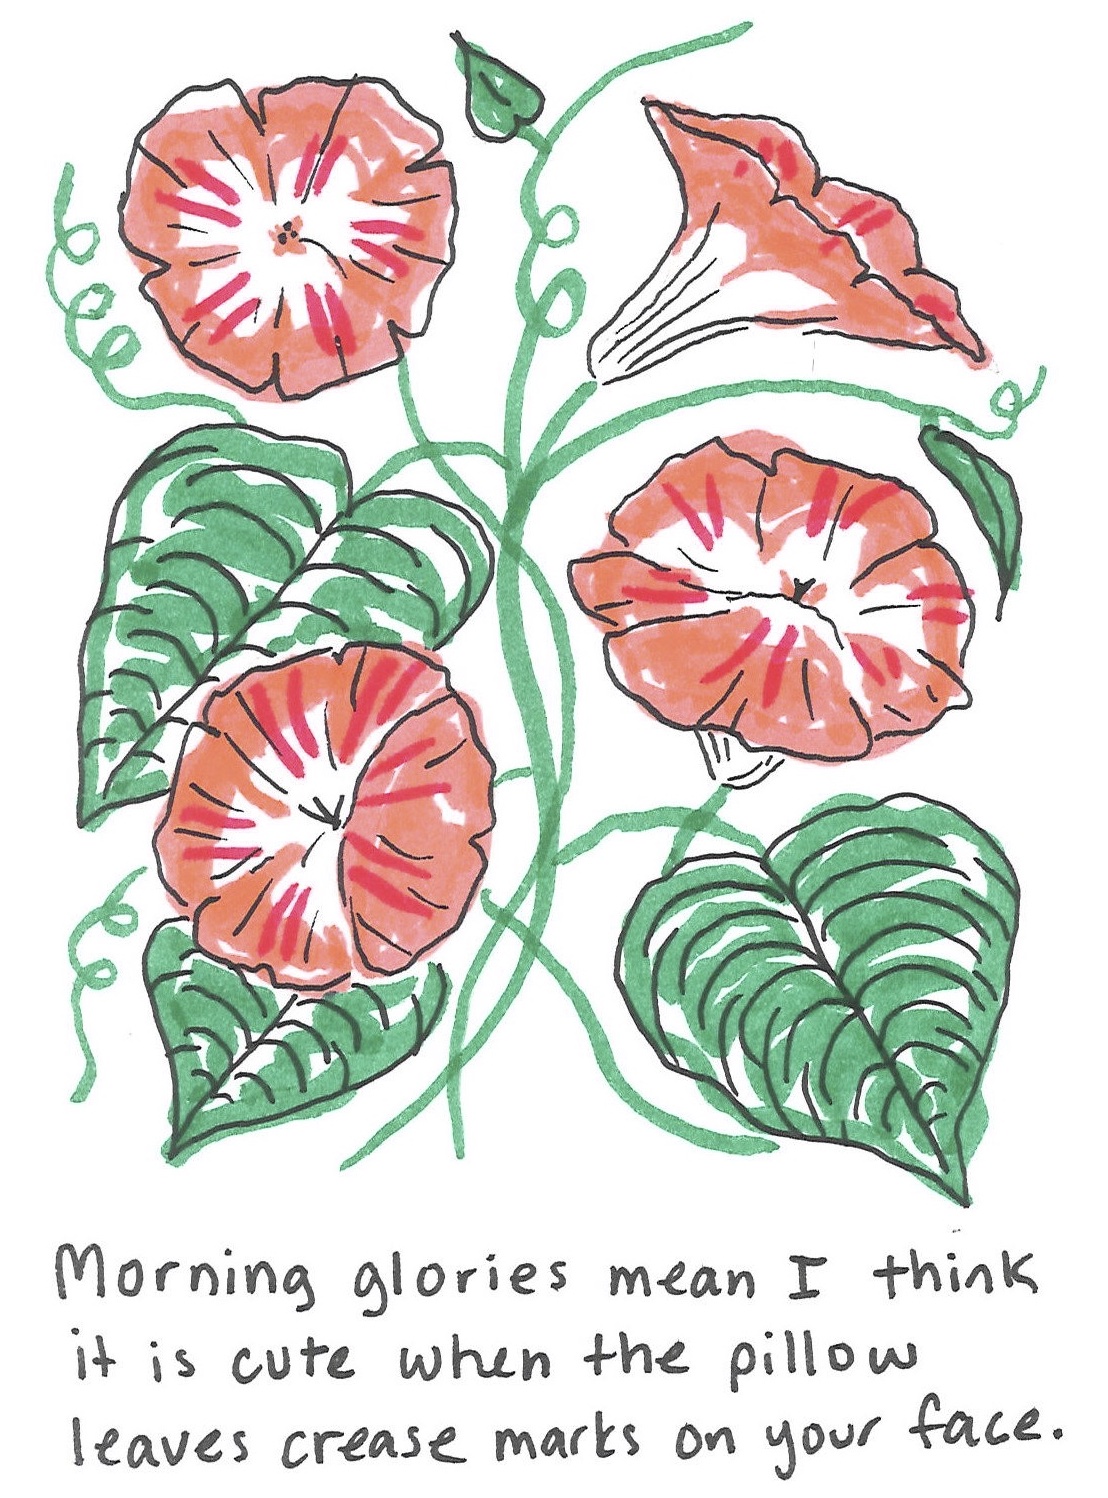 Morning glories mean I think
it is cute when the pillow
leaves crease marks on your face.